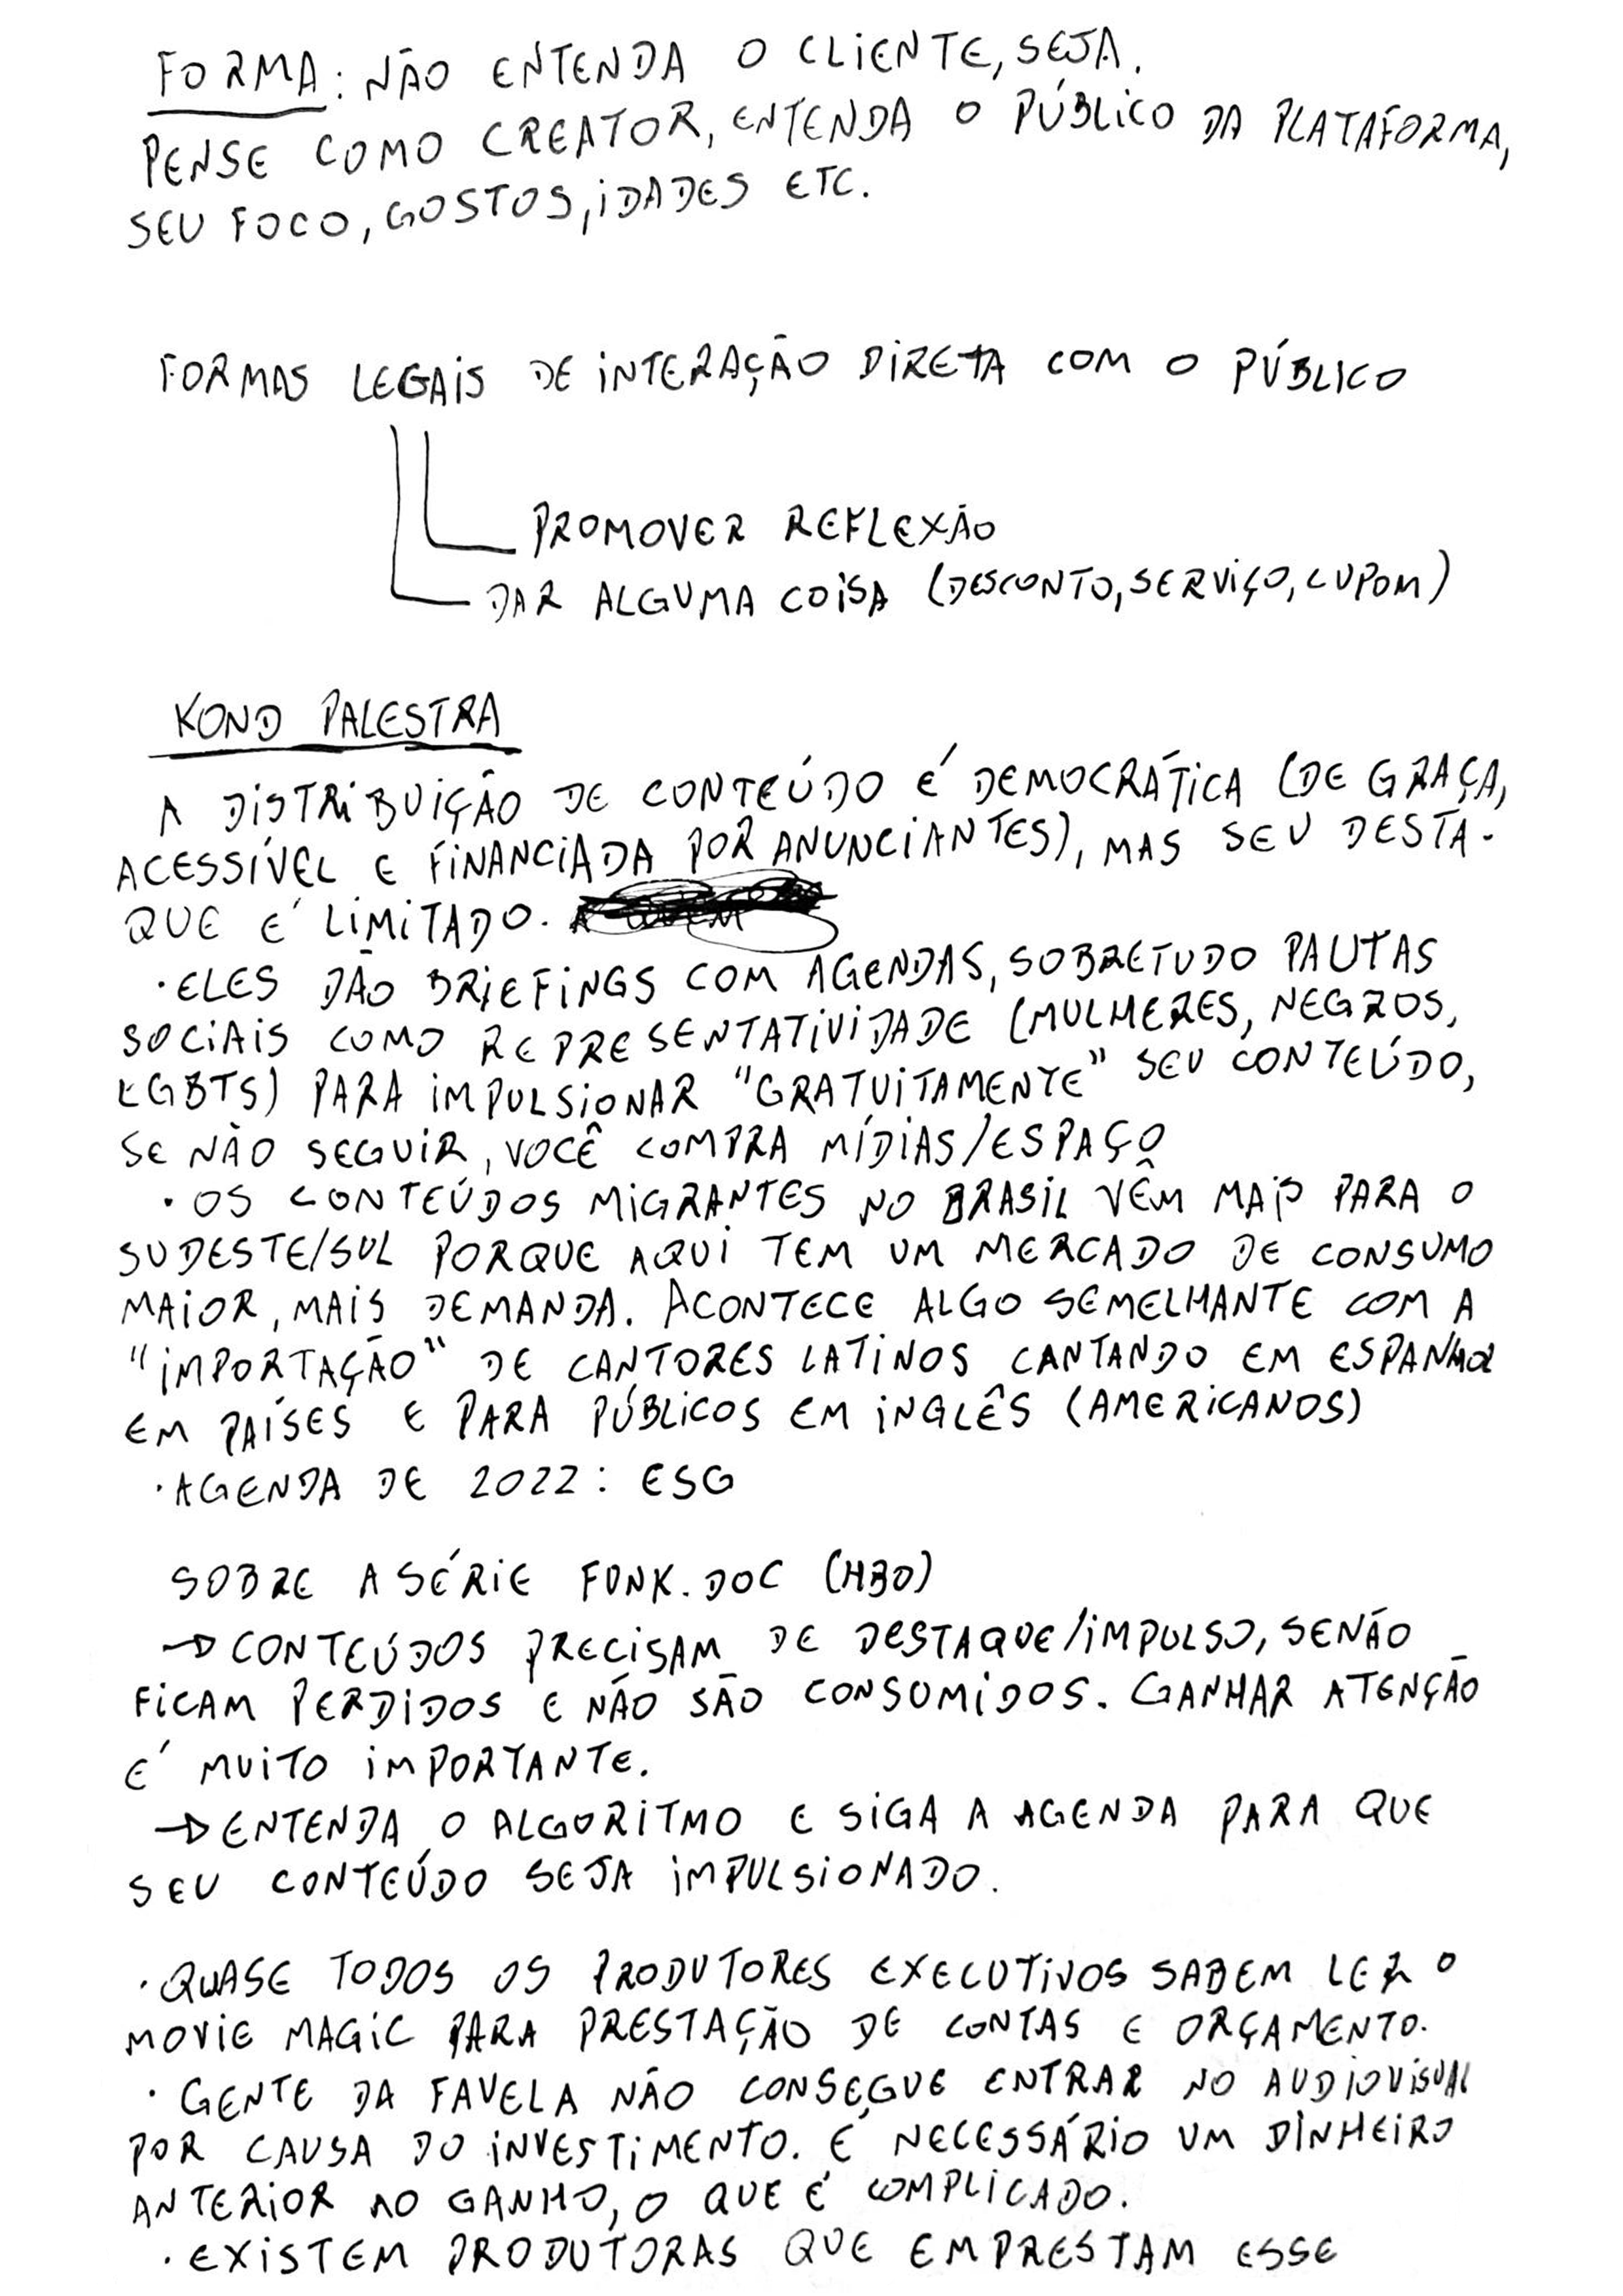 FORMA: NÃO ENTENDA O CLIENTE, SEJA.
PENSE COMO CREATOR, ENTENDA O PÚBLICO DA PLATAFORMA,
SEU FOCO, GOSTOS, IDADES ETC.
FORMAS LEGAIS DE INTERAÇÃO DIRETA COM O PÚBLICO
PROMOVER REFLEXÃO
DAR ALGUMA COISA (DESCONTO, SERVIÇO, CUPOM)
KOND PALESTRA
A DISTRIBUIÇÃO DE CONTEÚDO É DEMOCRÁTICA (DE GRAÇA,
ACESSÍVEL E FINANCIADA POR ANUNCIANTES), MAS SEU DESTA-
QUE É LIMITADO.
· ELES DÃO BRIEFINGS COM AGENDAS, SOBRETUDO PAUTAS
SOCIAIS COMO REPRESENTATIVIDADE (MULHERES, NEGROS,
LGBTS) PARA IMPULSIONAR "GRATUITAMENTE" SEU CONTEÚDO,
SE NÃO SEGUIR, VOCÊ COMPRA MÍDIAS/ESPAÇO
· OS CONTEÚDOS MIGRANTES NO BRASIL VÊM MAIS PARA O
SUDESTE/SUL PORQUE AQUI TEM UM MERCADO DE CONSUMO
MAIOR, MAIS DEMANDA. ACONTECE ALGO SEMELHANTE COM A
"IMPORTAÇÃO" DE CANTORES LATINOS CANTANDO EM ESPANHOL
EM PAÍSES E PARA PÚBLICOS EM INGLÊS (AMERICANOS)
· AGENDA DE 2022: ESG
SOBRE A SÉRIE FUNK.DOC (HBO)
→ CONTEÚDOS PRECISAM DE DESTAQUE/IMPULSO, SENÃO
FICAM PERDIDOS E NÃO SÃO CONSUMIDOS. GANHAR ATENÇÃO
É MUITO IMPORTANTE.
→ ENTENDA O ALGORITMO E SIGA A AGENDA PARA QUE
SEU CONTEÚDO SEJA IMPULSIONADO.
· QUASE TODOS OS PRODUTORES EXECUTIVOS SABEM LER O
MOVIE MAGIC PARA PRESTAÇÃO DE CONTAS E ORÇAMENTO.
· GENTE DA FAVELA NÃO CONSEGUE ENTRAR NO AUDIOVISUAL
POR CAUSA DO INVESTIMENTO. É NECESSÁRIO UM DINHEIRO
ANTERIOR AO GANHO, O QUE É COMPLICADO.
· EXISTEM PRODUTORAS QUE EMPRESTAM ESSE